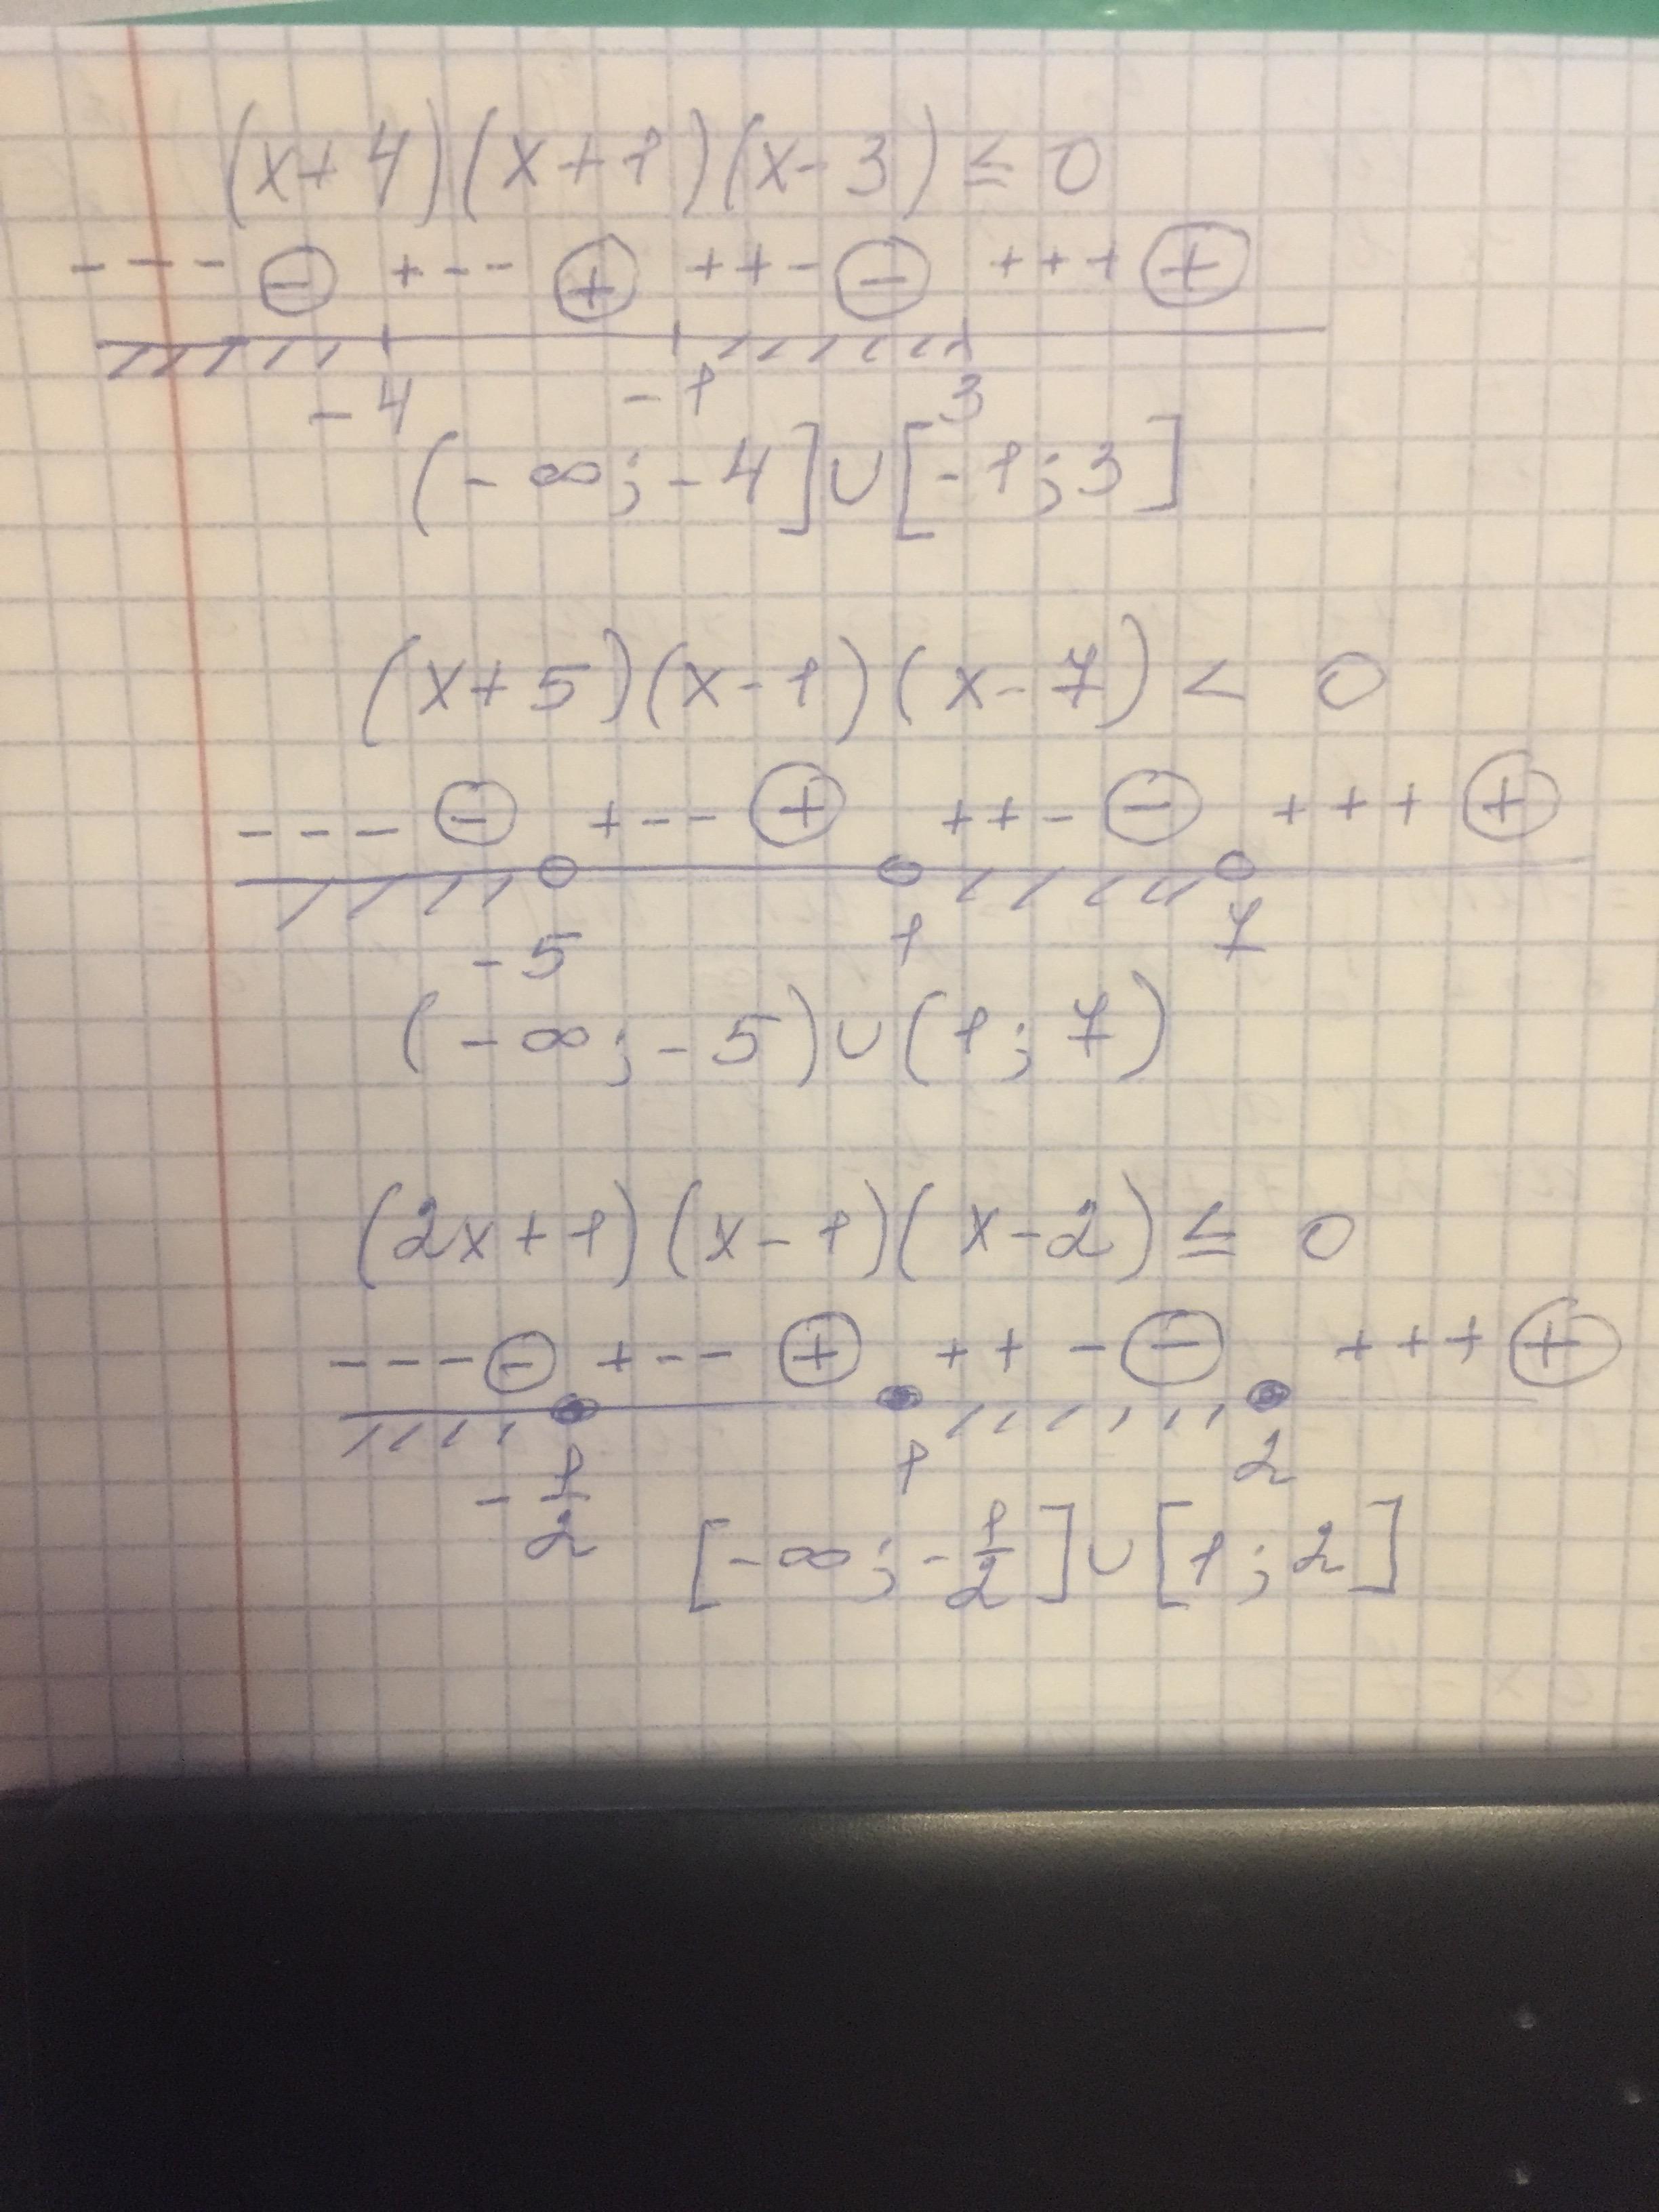 (x+4)(x+1)(x-3) ≤ 0
- - - ⊖ + - - ⊕ + + - ⊖ + + + ⊕
-4 -1 3
(-∞; -4] ∪ [-1; 3]
(x+5)(x-1)(x-7) < 0
- - - ⊖ + - - ⊕ + + - ⊖ + + + ⊕
-5 1 7
(-∞; -5) ∪ (1; 7)
(2x+1)(x-1)(x-2) ≤ 0
- - - ⊖ + - - ⊕ + + - ⊖ + + + ⊕
-1/2 1 2
[-∞; -1/2] ∪ [1; 2]